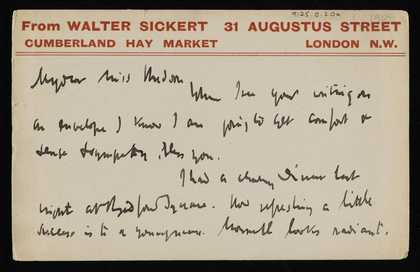 9125.0.20
From WALTER SICKERT 31 AUGUSTUS STREET
CUMBERLAND HAY MARKET LONDON N.W.
My dear Miss Hudson
When I see your writing on
an envelope I know I am going to get comfort &
sense & sympathy. Bless you.
I had a charming Dinner last
night at Bedford Square. How refreshing a little
success is to a young man. Maxwell looks radiant.